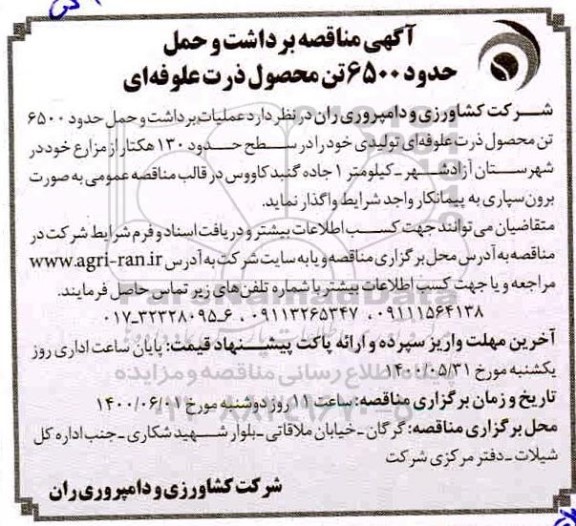 آگهی مناقصه برداشت و حمل
حدود ۶۵۰۰ تن محصول ذرت علوفه‌ای
شرکت کشاورزی و دامپروری ران در نظر دارد عملیات برداشت و حمل حدود ۶۵۰۰
تن محصول ذرت علوفه‌ای تولیدی خود را در سطح حدود ۱۳۰ هکتار از مزارع خود در
شهرستان آزادشهر ـ کیلومتر ۱ جاده گنبد کاووس در قالب مناقصه عمومی به صورت
برون‌سپاری به پیمانکار واجد شرایط واگذار نماید.
متقاضیان می‌توانند جهت کسب اطلاعات بیشتر و دریافت اسناد و فرم شرایط شرکت در
مناقصه به آدرس محل برگزاری مناقصه و یا به سایت شرکت به آدرس www.agri-ran.ir
مراجعه و یا جهت کسب اطلاعات بیشتر با شماره تلفن‌های زیر تماس حاصل فرمایند.
۰۹۱۱۱۵۶۴۱۳۸ ، ۰۹۱۱۳۲۶۵۳۴۷ ، ۶ـ۰۱۷-۳۲۳۲۸۰۹۵
آخرین مهلت واریز سپرده و ارائه پاکت پیشنهاد قیمت: پایان ساعت اداری روز
یکشنبه مورخ ۱۴۰۰/۰۵/۳۱
تاریخ و زمان برگزاری مناقصه: ساعت ۱۱ روز دوشنبه مورخ ۱۴۰۰/۰۶/۰۱
محل برگزاری مناقصه: گرگان ـ خیابان ملاقاتی ـ بلوار شهید شکاری ـ جنب اداره کل
شیلات ـ دفتر مرکزی شرکت
شرکت کشاورزی و دامپروری ران